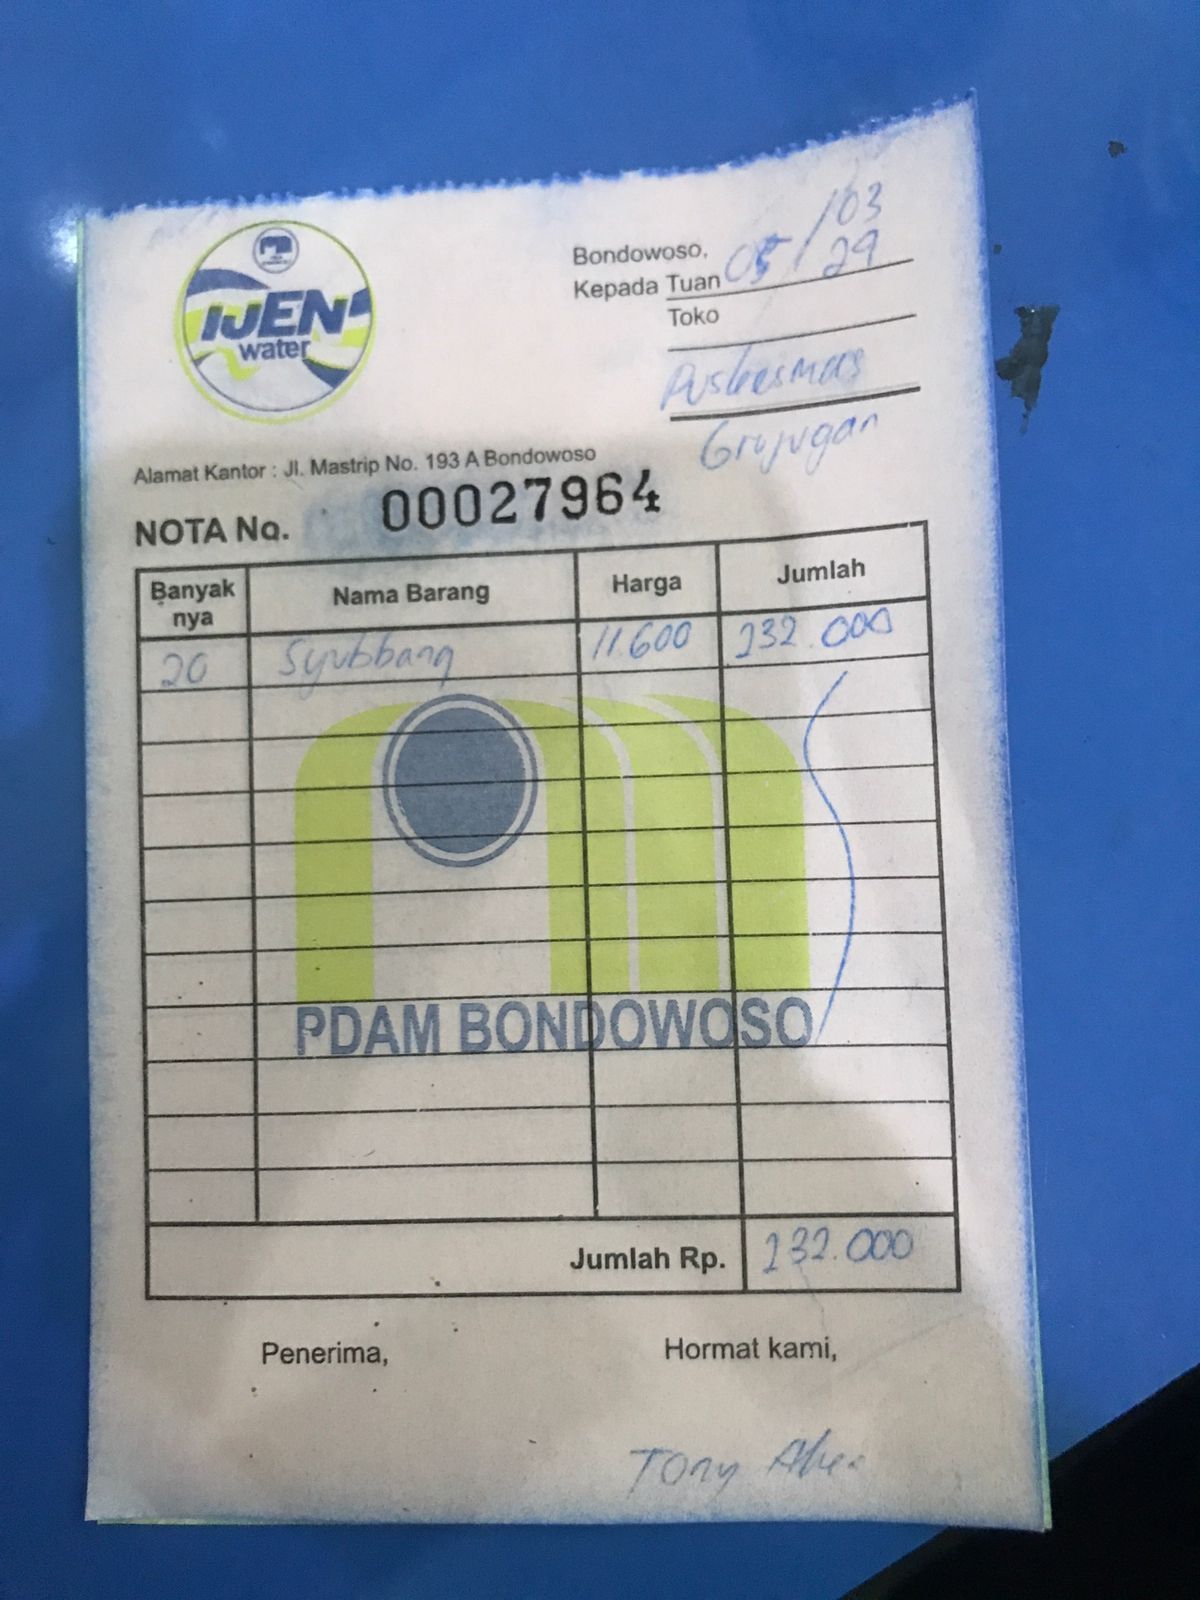 IJEN
water
Bondowoso, 05/03
Kepada Tuan 29
Toko
Puskesmas
Grujugan
Alamat Kantor : Jl. Mastrip No. 193 A Bondowoso
NOTA No. 00027964
Banyak nya Nama Barang Harga Jumlah
20 Syubbang 11.600 232.000
PDAM BONDOWOSO
Jumlah Rp. 232.000
Penerima, Hormat kami,
Tony